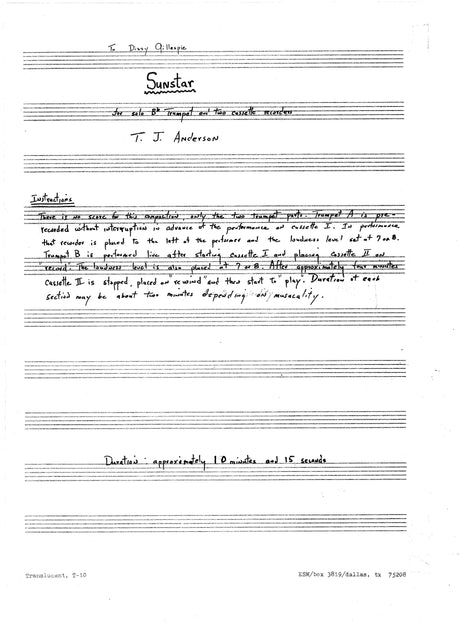 To Dizzy Gillespie
Sunstar
for solo Bb Trumpet and two cassette recorders
T. J. Anderson
Instructions
There is no score for this composition, only the two trumpet parts. Trumpet A is pre-
recorded without interruption in advance of the performance on cassette I. In performance,
that recorder is placed to the left of the performer and the loudness level set at 7 or 8.
Trumpet B is performed live after starting cassette I and placing cassette II on
record. The loudness level is also placed at 7 or 8. After approximately four minutes
cassette II is stopped, placed on "rewind" and then start to "play". Duration of each
section may be about two minutes depending on musicality.
Duration: approximately 10 minutes and 15 seconds
Translucent, T-10
ESM/box 3819/dallas, tx 75208